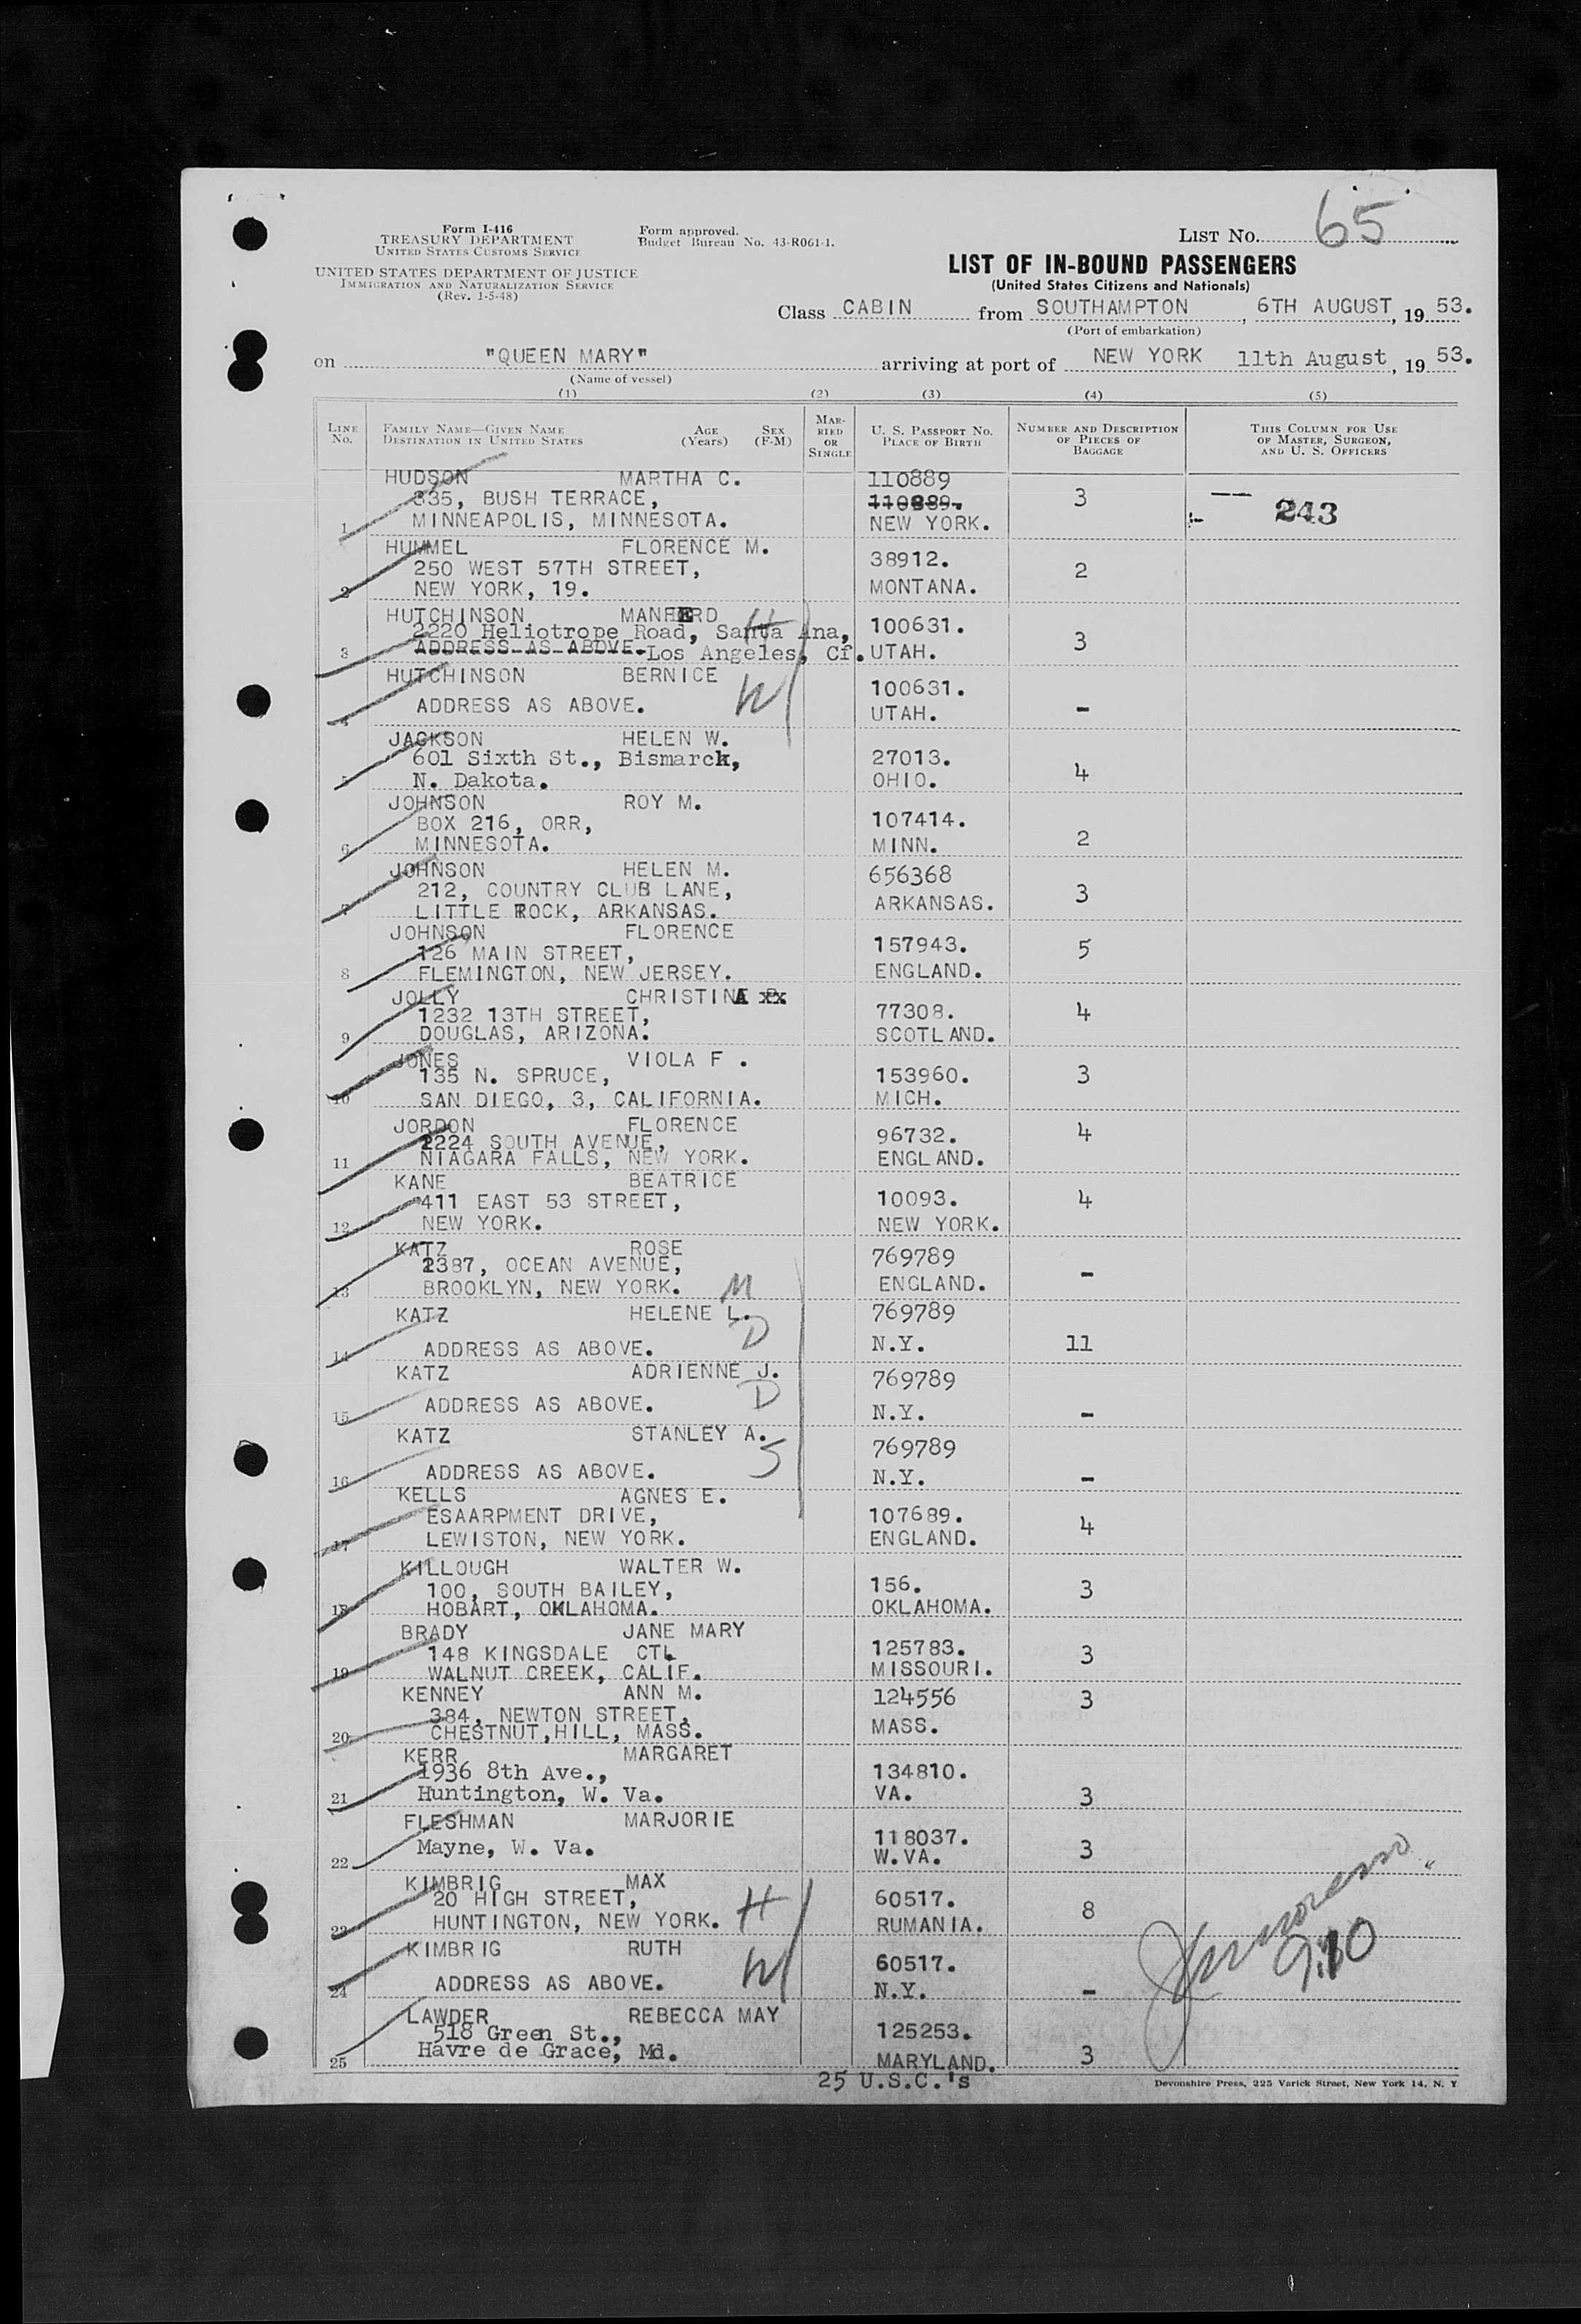 65
Form I-416
TREASURY DEPARTMENT
UNITED STATES CUSTOMS SERVICE
UNITED STATES DEPARTMENT OF JUSTICE
IMMIGRATION AND NATURALIZATION SERVICE
(Rev. 1-5-48)
Form approved.
Budget Bureau No. 43-R061-1.
LIST NO.
LIST OF IN-BOUND PASSENGERS
(United States Citizens and Nationals)
Class CABIN from SOUTHAMPTON, 6TH AUGUST, 19 53.
(Port of embarkation)
on "QUEEN MARY" arriving at port of NEW YORK 11th August, 19 53.
(Name of vessel)
(1) (2) (3) (4) (5)
LINE NO. FAMILY NAME—GIVEN NAME DESTINATION IN UNITED STATES AGE (Years) SEX (F-M) MARRIED OR SINGLE U. S. PASSPORT NO. PLACE OF BIRTH NUMBER AND DESCRIPTION OF PIECES OF BAGGAGE THIS COLUMN FOR USE OF MASTER, SURGEON, AND U. S. OFFICERS
HUDSON MARTHA C. 110889
335, BUSH TERRACE, 110889. 3 -- 243
1 MINNEAPOLIS, MINNESOTA. NEW YORK.
HUMMEL FLORENCE M. 38912.
250 WEST 57TH STREET, 2
2 NEW YORK, 19. MONTANA.
HUTCHINSON MANFERD H 100631.
2220 Heliotrope Road, Santa Ana, 3
3 ADDRESS AS ABOVE. Los Angeles, Cf. UTAH.
HUTCHINSON BERNICE W 100631.
4 ADDRESS AS ABOVE. UTAH. -
JACKSON HELEN W. 27013.
601 Sixth St., Bismarck, 4
5 N. Dakota. OHIO.
JOHNSON ROY M. 107414.
BOX 216, ORR, 2
6 MINNESOTA. MINN.
JOHNSON HELEN M. 656368
212, COUNTRY CLUB LANE, 3
7 LITTLE ROCK, ARKANSAS. ARKANSAS.
JOHNSON FLORENCE 157943. 5
126 MAIN STREET,
8 FLEMINGTON, NEW JERSEY. ENGLAND.
JOLLY CHRISTINA xx 77308. 4
1232 13TH STREET,
9 DOUGLAS, ARIZONA. SCOTLAND.
JONES VIOLA F . 153960. 3
135 N. SPRUCE,
10 SAN DIEGO, 3, CALIFORNIA. MICH.
JORDON FLORENCE 96732. 4
2224 SOUTH AVENUE,
11 NIAGARA FALLS, NEW YORK. ENGLAND.
KANE BEATRICE 10093. 4
411 EAST 53 STREET,
12 NEW YORK. NEW YORK.
KATZ ROSE 769789
2387, OCEAN AVENUE, -
13 BROOKLYN, NEW YORK. M ENGLAND.
KATZ HELENE L. D 769789
14 ADDRESS AS ABOVE. N.Y. 11
KATZ ADRIENNE J. D 769789
15 ADDRESS AS ABOVE. N.Y. -
KATZ STANLEY A. S 769789
16 ADDRESS AS ABOVE. N.Y. -
KELLS AGNES E. 107689.
ESAARPMENT DRIVE, 4
17 LEWISTON, NEW YORK. ENGLAND.
KILLOUGH WALTER W. 156. 3
100, SOUTH BAILEY,
18 HOBART, OKLAHOMA. OKLAHOMA.
BRADY JANE MARY 125783. 3
148 KINGSDALE CT.
19 WALNUT CREEK, CALIF. MISSOURI.
KENNEY ANN M. 124556 3
384, NEWTON STREET,
20 CHESTNUT,HILL, MASS. MASS.
KERR MARGARET 134810.
1936 8th Ave.,
21 Huntington, W. Va. VA. 3
FLESHMAN MARJORIE 118037.
22 Mayne, W. Va. W.VA. 3
KIMBRIG MAX 60517.
20 HIGH STREET, 8
23 HUNTINGTON, NEW YORK. H RUMANIA.
KIMBRIG RUTH W 60517. 9.30
24 ADDRESS AS ABOVE. N.Y. -
LAWDER REBECCA MAY 125253.
518 Green St.,
25 Havre de Grace, Md. MARYLAND. 3
25 U.S.C.'s
Devonshire Press, 225 Varick Street, New York 14, N. Y